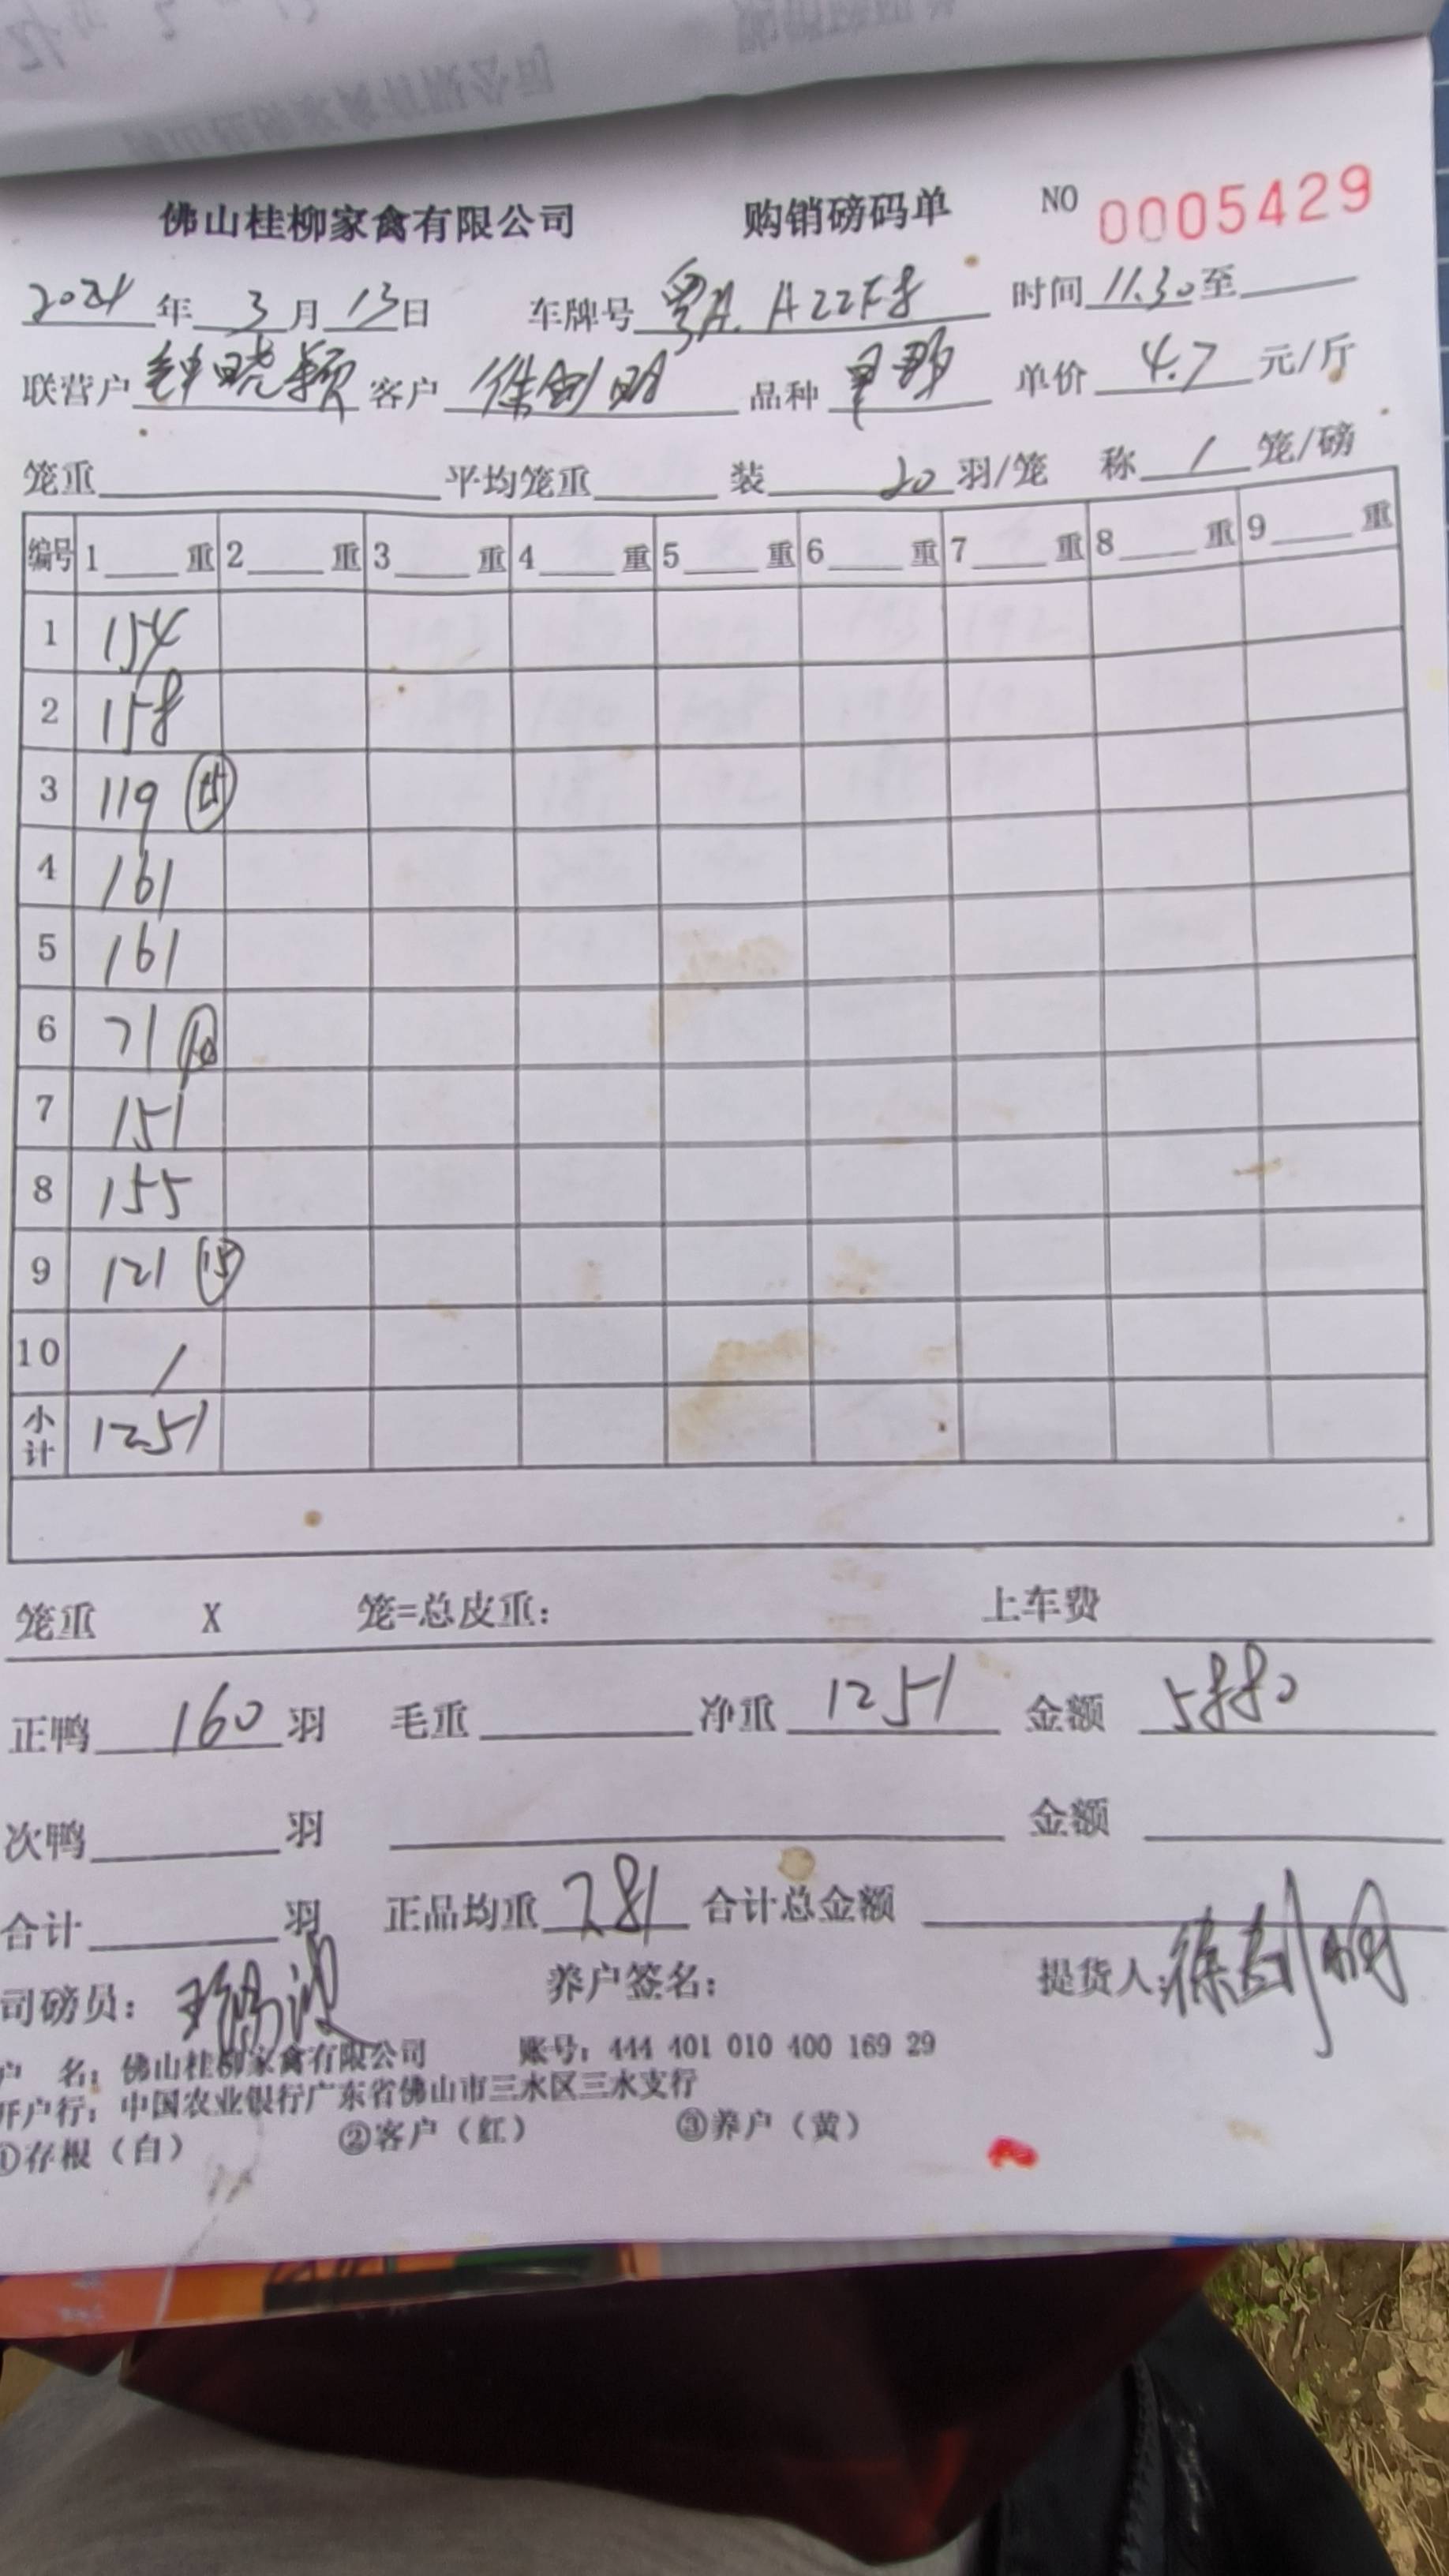 佛山桂柳家禽有限公司 购销磅码单 NO 0005429
2024年3月13日 车牌号粤A.A22F8 时间11.30至
联营户钟晓颖 客户徐剑明 品种 单价4.7元/斤
笼重 平均笼重 装20羽/笼 称1笼/磅
编号 1 重 2 重 3 重 4 重 5 重 6 重 7 重 8 重 9 重
1 154
2 158
3 119 (15)
4 161
5 161
6 71 (10)
7 151
8 155
9 121 (15)
10 /
小计 1251
笼重 X 笼=总皮重: 上车费
正鸭160羽 毛重 净重1251 金额5880
次鸭 羽 金额
合计 羽 正品均重 781 合计总金额
司磅员: 养户签名: 提货人:徐剑明
户 名: 佛山桂柳家禽有限公司 账号: 444 401 010 400 169 29
开户行: 中国农业银行广东省佛山市三水区三水支行
①存根(白) ②客户(红) ③养户(黄)